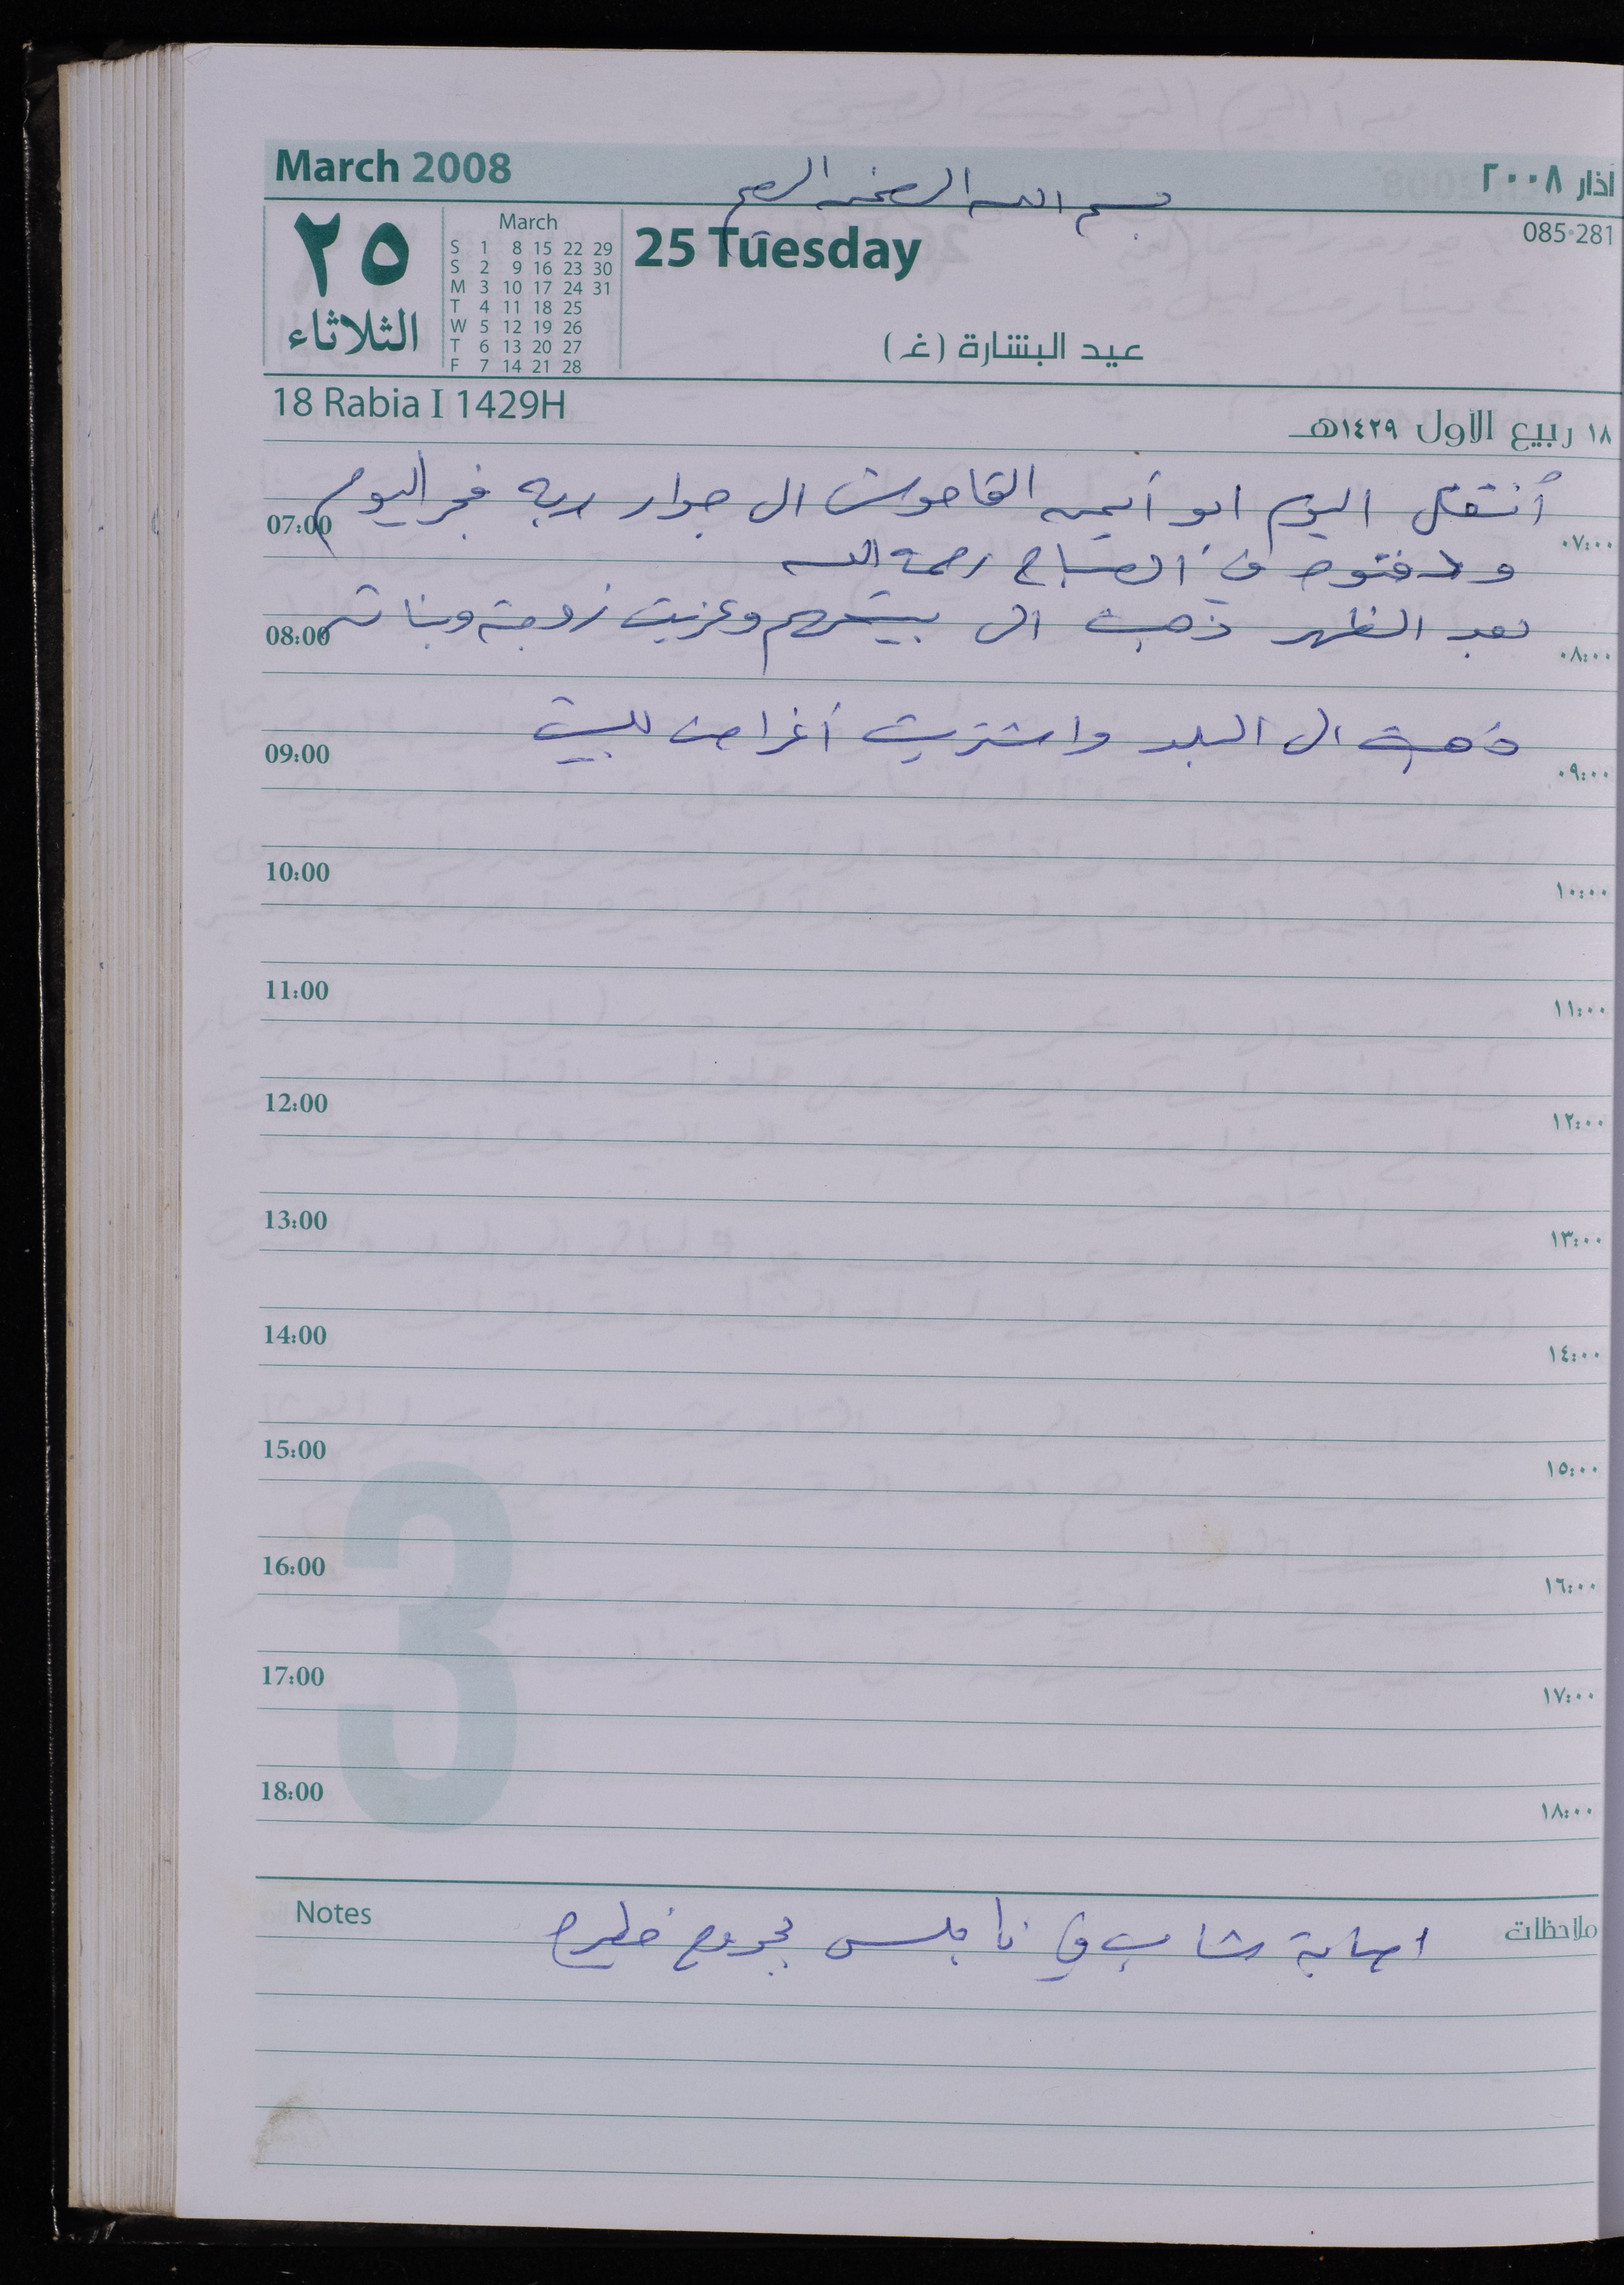 بسم الله الرحمن الرحيم
March 2008
اذار ٢٠٠٨
٢٥
الثلاثاء
March
S 1 8 15 22 29
S 2 9 16 23 30
M 3 10 17 24 31
T 4 11 18 25
W 5 12 19 26
T 6 13 20 27
F 7 14 21 28
25 Tuesday
085-281
عيد البشارة (غ)
18 Rabia I 1429H
١٨ ربيع الأول ١٤٢٩هـ
أنتقل اليوم ابو أيمن القاموس الى جوار ربه فجر اليوم
07:00 ٠٧:٠٠
ودفنوه في الصباح رحمه الله
بعد الظهر ذهبت الى بيتهم وعزيت زوجته وبناته
08:00 ٠٨:٠٠
ذهبت الى البلد واشتريت أغراض للبيت
09:00 ٠٩:٠٠
10:00 ١٠:٠٠
11:00 ١١:٠٠
12:00 ١٢:٠٠
13:00 ١٣:٠٠
14:00 ١٤:٠٠
15:00 ١٥:٠٠
16:00 ١٦:٠٠
17:00 ١٧:٠٠
18:00 ١٨:٠٠
3
Notes
ملاحظات
اصابة شاب في نابلس بجروح خطرة